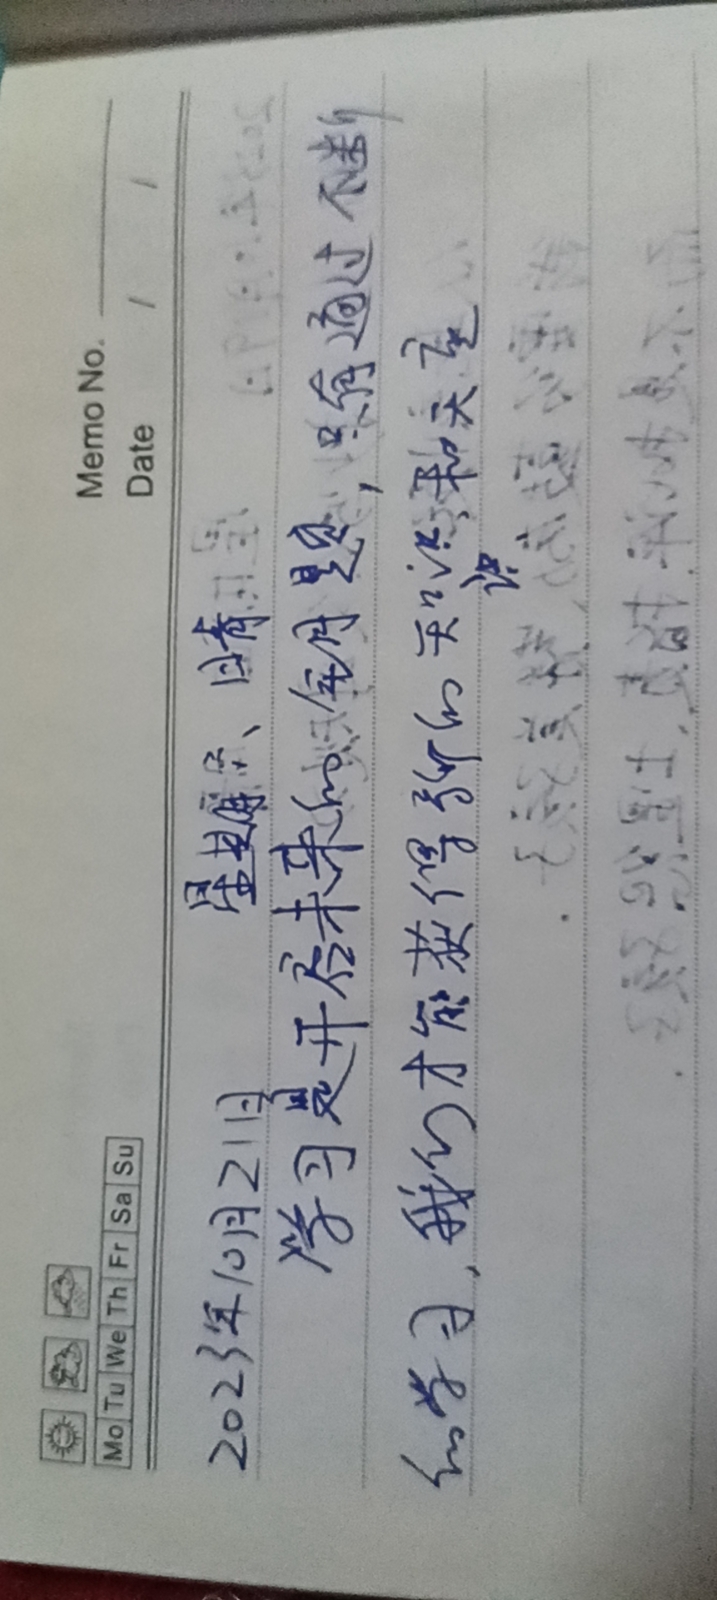 Memo No.
Mo Tu We Th Fr Sa Su Date / /
2023年10月21日 星期六、晴
学习是开启未来的钥匙,只有通过不断
的学习,我们才能获得新的知识和
识